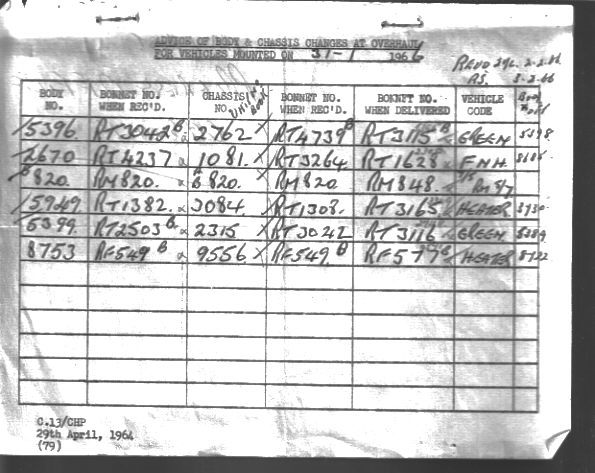 ADVICE OF BODY & CHASSIS CHANGES AT OVERHAUL
FOR VEHICLES MOUNTED ON 31-1 1966
2-2-66
BODY NO. BONNET NO. WHEN REC'D. CHASSIS NO. BONNET NO. WHEN REC'D. BONNET NO. WHEN DELIVERED VEHICLE CODE
5396 RT3042 B 2762 RT4739 B RT3115 GREEN
2670 RT4237 1081. RT3264 RT1628 F.N.H.
B 820. RM820. 820. RM820 RM848.
5949 RT1382. 3084. RT1308. RT3165 HEATER
5399. RT2503 B 2315 RT3042 RT3116 GREEN
8753 RF549 B 9556 RF549 B RF577 B HEATER
C.13/CHP
29th April, 1964
(79)